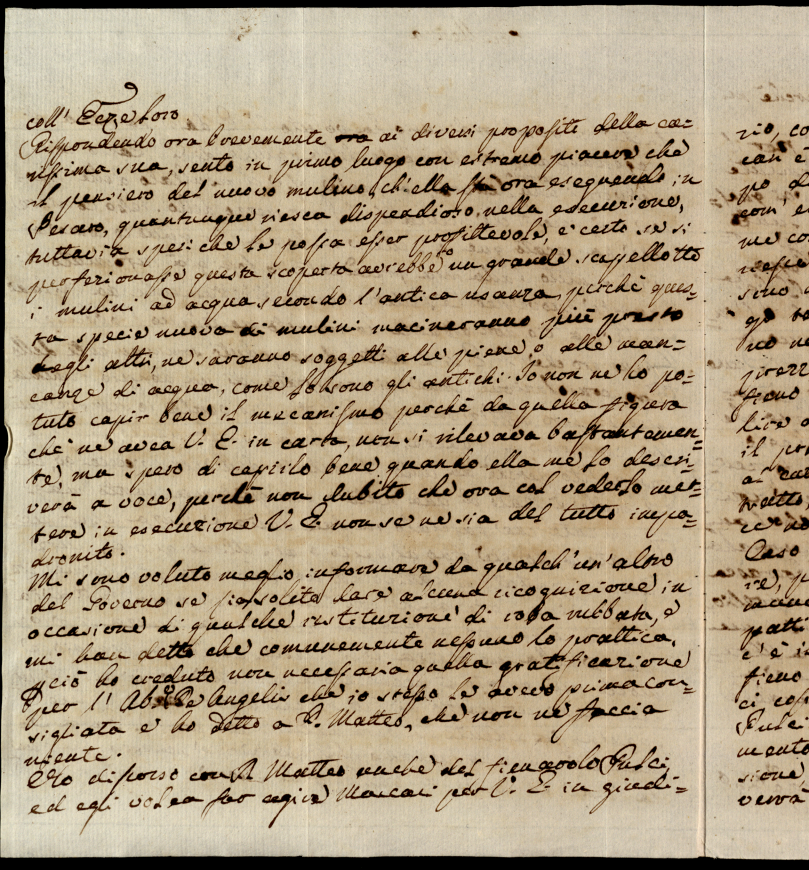 coll'
Rispondendo ora brevemente ora ai diversi propositi della ca=
rissima sua, sento in primo luogo con estremo piacere che
il pensiero del nuovo mulino, ch'ella fa ora eseguendo in
Pesaro, quantunque riesca dispendioso, nella esecuzione,
tuttavia speri che le possa esser profittevole, e certo se si
perfezionasse questa scoperta avrebbero un grande scapellotto
i mulini ad acqua secondo l'antica usanza, perchè ques=
ta specie nuova di mulini macineranno più presto
degli altri, ne saranno soggetti alle piene, o alle man=
canze di acqua, come lo sono gli antichi. Io non ne ho po=
tuto capir bene il mecanismo perchè da quella figura
che ne avea V. E. in carta, non si rilevava bastantemen=
te, ma spero di capirlo bene quando ella me lo descri=
verà a voce, perchè non dubito che ora col vederlo met=
tere in esecuzione V. E. non se ne sia del tutto impa=
dronito.
Mi sono voluto meglio informare da qualch'un'altro
del Governo se sia solito dare alcuna ricognizione in
occasione di qualche restituzione di roba rubbata, e
mi han detto che comunemente nessuno lo prattica,
perciò ho creduto non necessaria quella gratificazione
per l' Ab. De Angelis che io stesso le avevo prima con=
sigliata e ho detto a P. Matteo, che non ne faccia
niente.
Ero discorso con P. Matteo anche del fienarolo Pulci
ed egli volea far agire Maccari per V. E. in giudi=
rio, co
can e
po d
com, e
me co
nesse
sino
go
no ne
prezz
fieno
lire
il pr
al ca
Caso
re, p
patti
c'è i
fieno
ci cos
Pulci
mento
sione
verrà